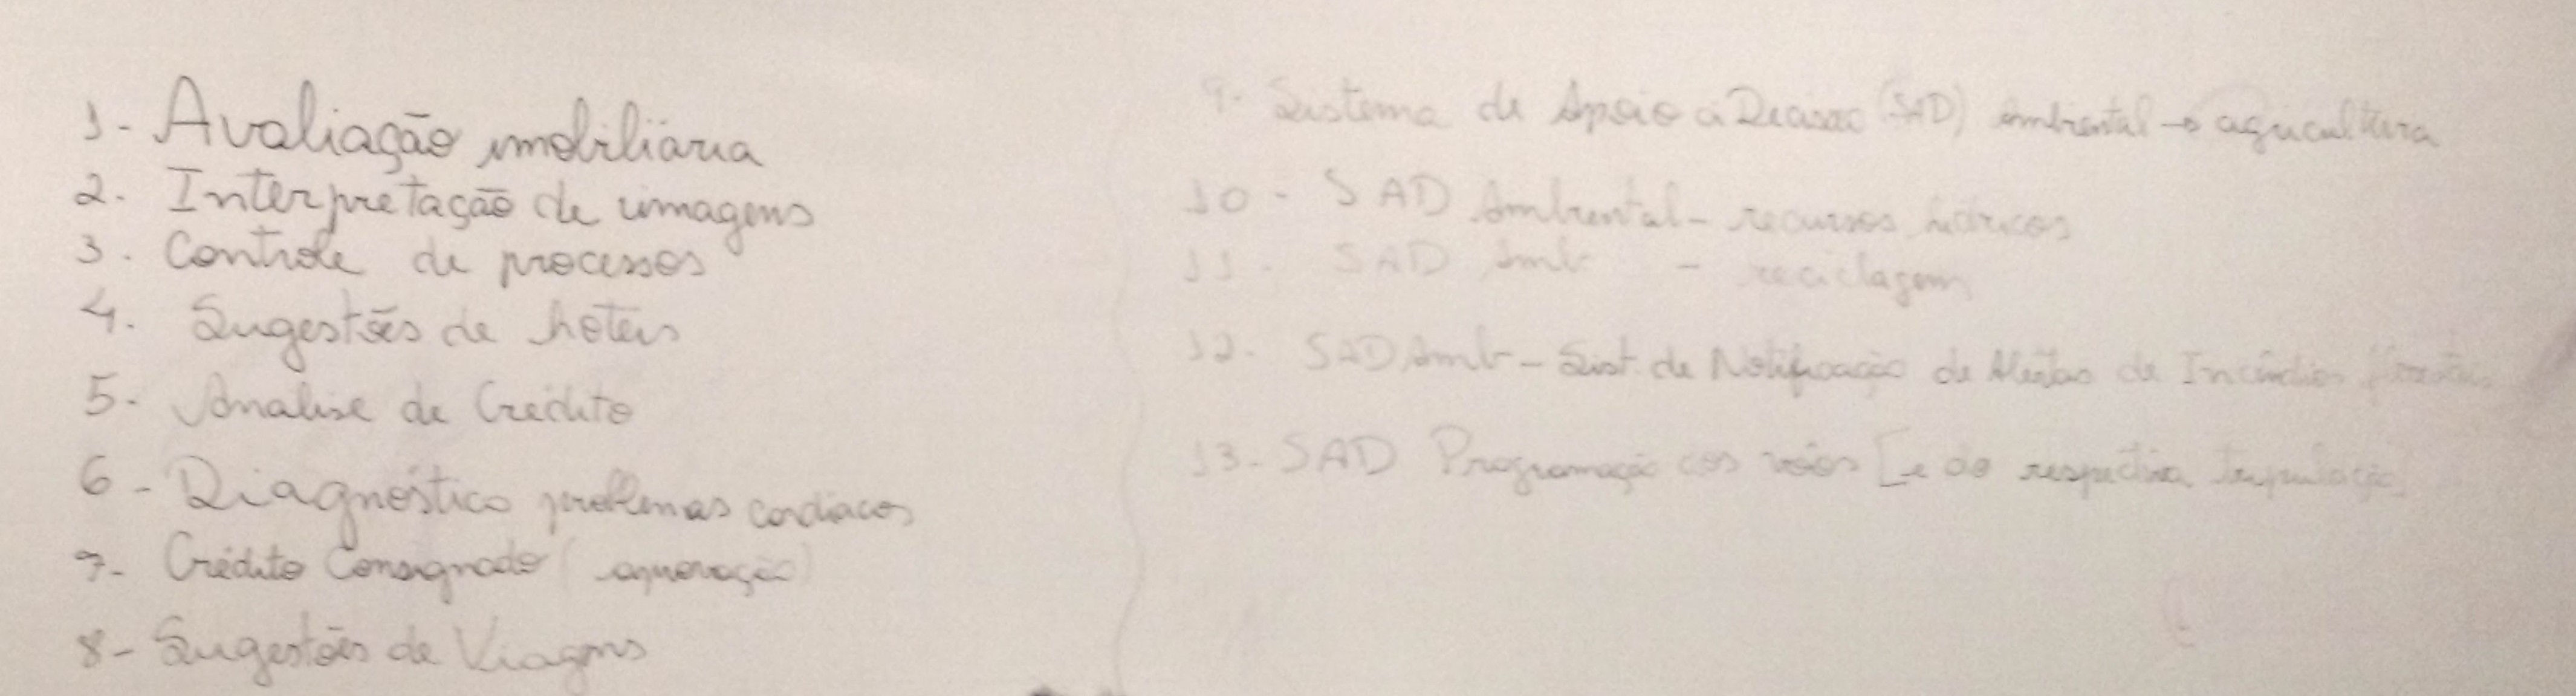 1- Avaliação imobiliária
2. Interpretação de imagens
3. Controle de processos
4. Sugestões de hotéis
5- Análise de Crédito
6- Diagnóstico problemas cardíacos
7- Crédito Consignado (aprovação)
8- Sugestões de Viagens
9- Sistema de Apoio à Decisão (SAD) Ambiental → agricultura
10- SAD Ambiental - recursos hídricos
11- SAD Amb - reciclagem
12- SAD Amb - Sist. de Notificação de Alertas de Incêndios florestais
13- SAD Programação dos vôos [e da respectiva tripulação